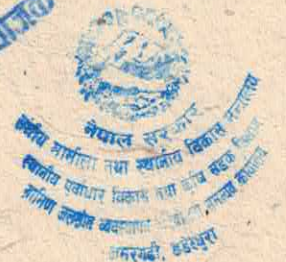 नेपाल सरकार
संघीय मामिला तथा स्थानीय विकास मन्त्रालय
स्थानीय पूर्वाधार विकास तथा कृषि सडक विभाग
ग्रामिण जलस्रोत व्यवस्थापन
कार्यालय
अमरगढी, डडेल्धुरा